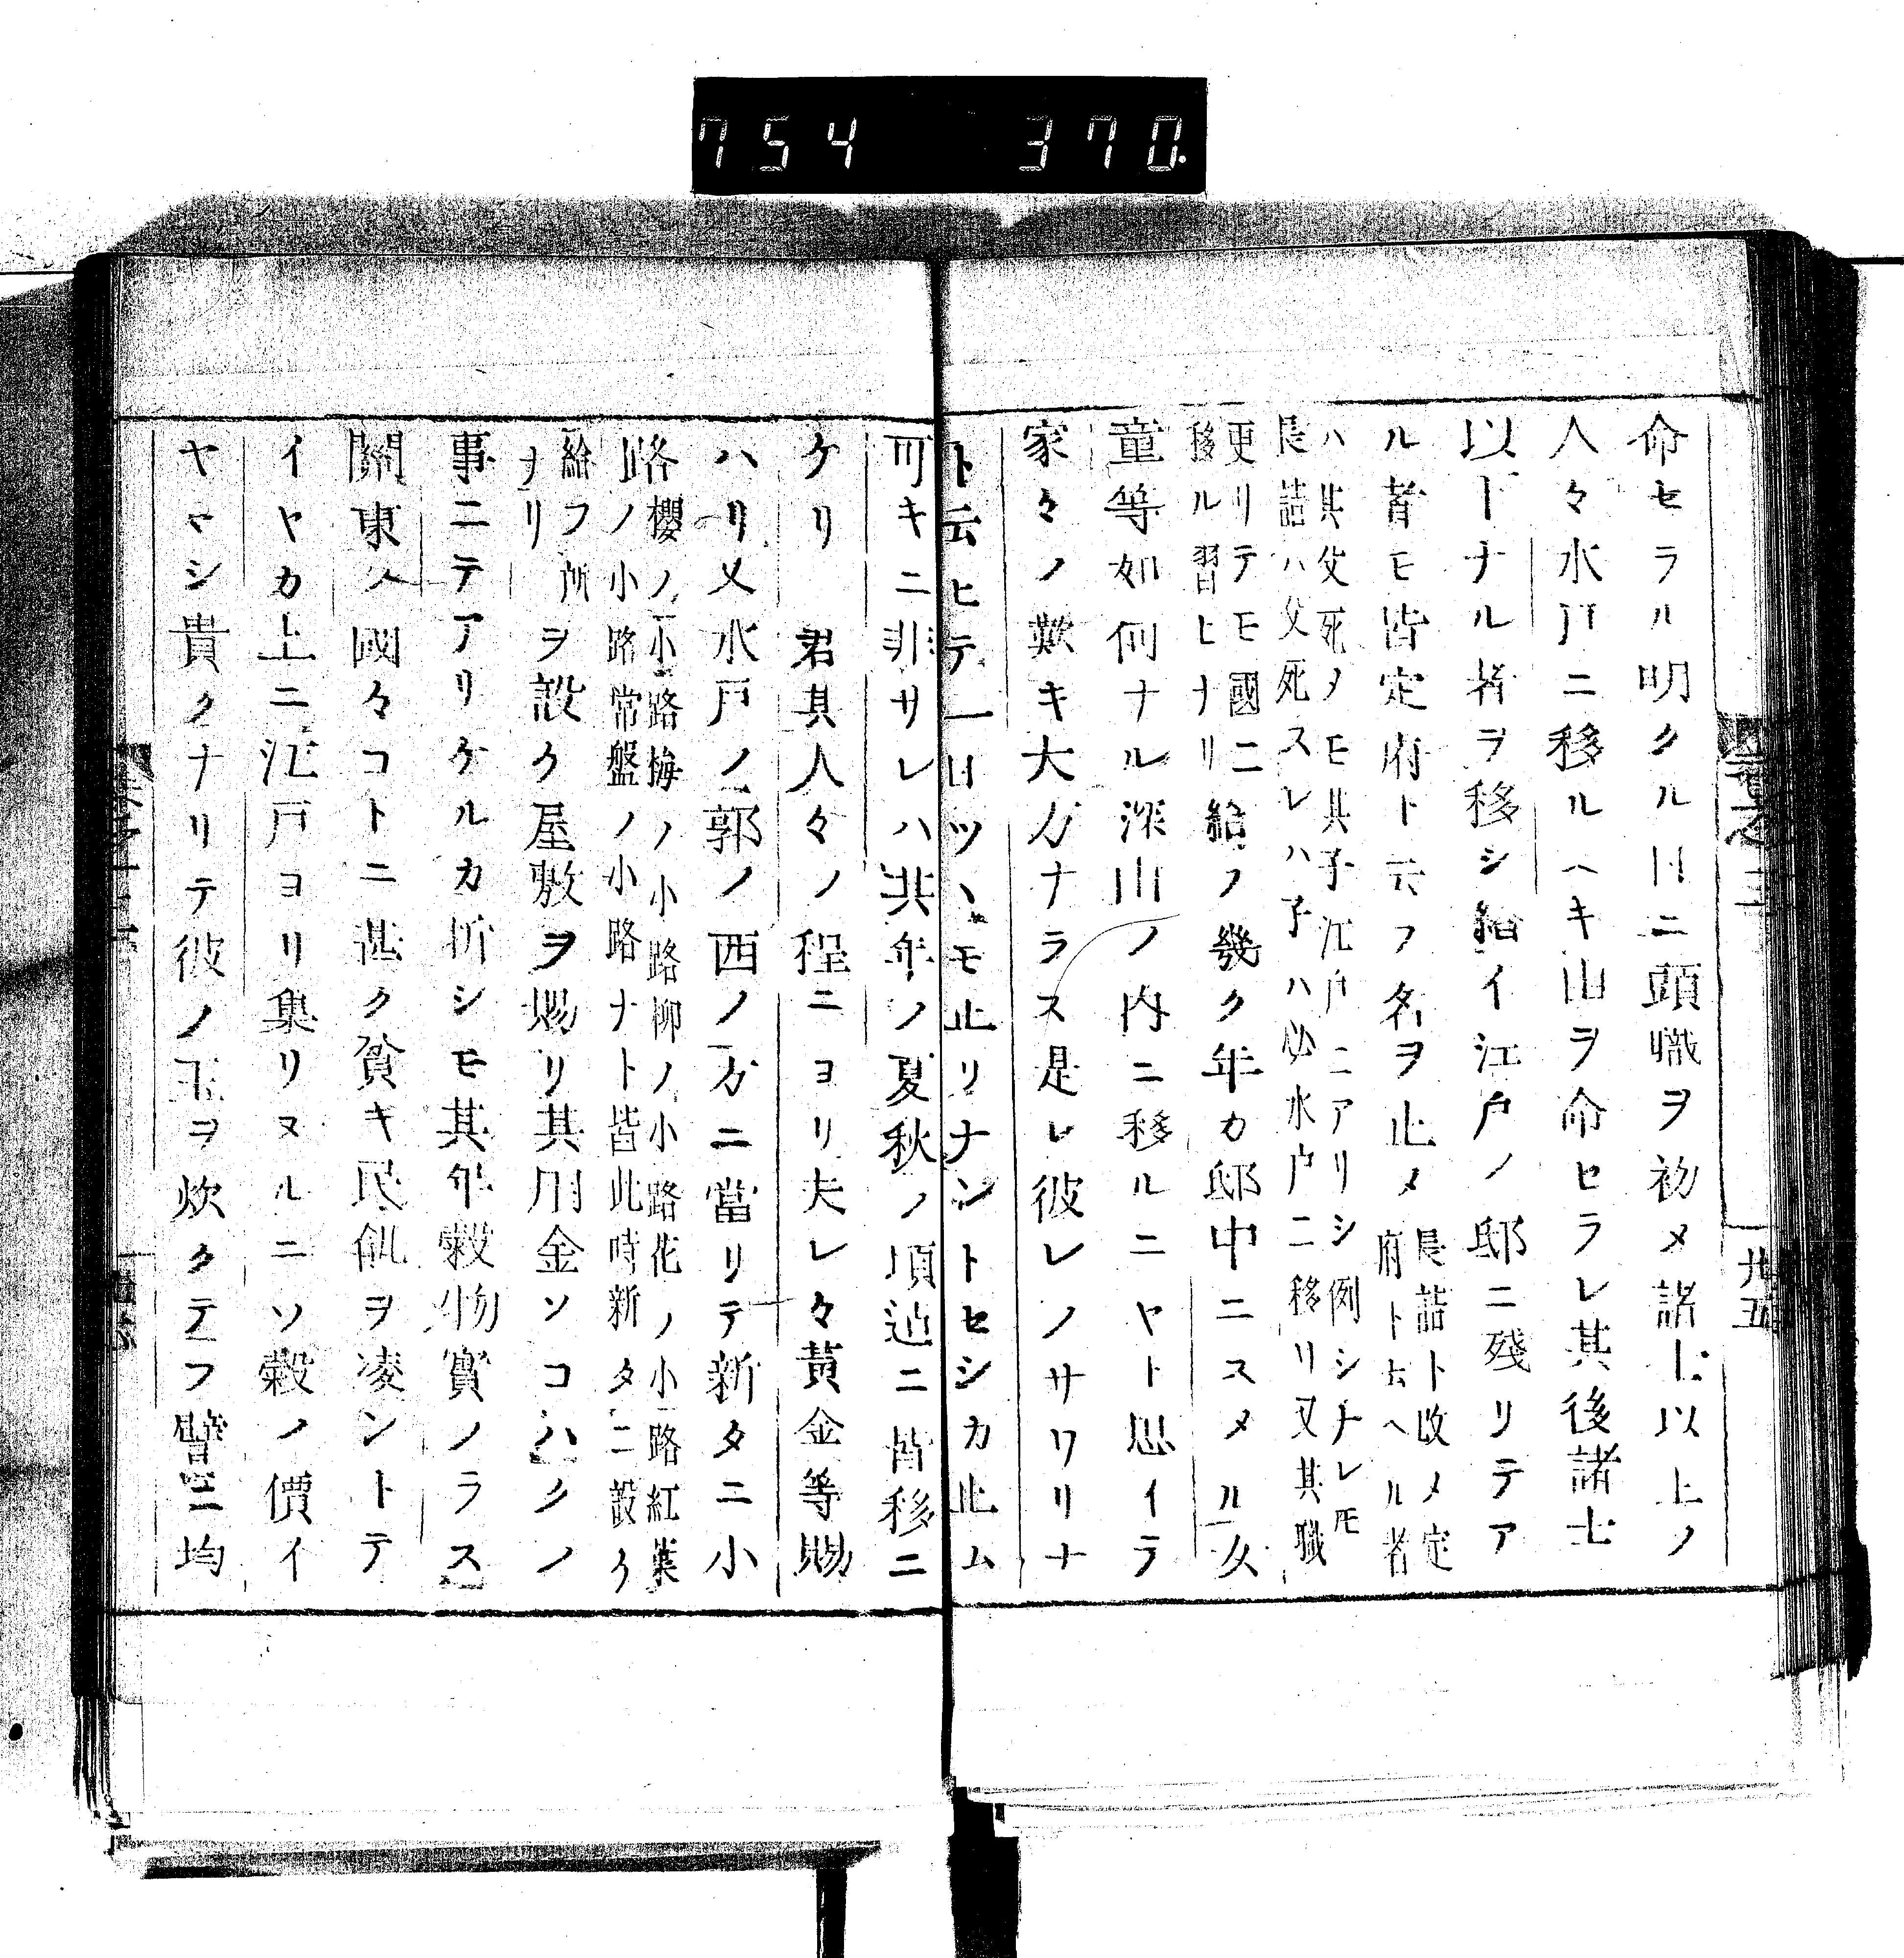 754 370
廿五
命セラル明クル日ニ頭職ヲ初メ諸士以上ノ
人々水戸ニ移ルヘキ山ヲ命セラレ其後諸士
以下ナル者ヲ移シ給イ江戸ノ邸ニ殘リテア
ル者モ皆定府ト云フ名ヲ止メ
長詰ト改メ定
府ト云ヘル者
ハ其父死ノモ其子江戸ニアリシ例シナレモ
長詰ハ父死スレハ子ハ必水户ニ移リ又其職
更リテモ國ニ
移ル習ヒナリ
給ノ幾ク年カ邸中ニスメル女
童等如何ナル深山ノ内ニ移ルニヤト思イテ
家々ノ歎キ大方ナラス是レ彼レノサワリナ
ト云ヒテ一日ツヽモ止リナントセシカ止ム
可キニ非サレハ共年ノ夏秋ノ頃迠ニ皆移ニ
ケリ 君其人々ノ程ニヨリ夫レ々黄金等賜
ハリ又水戸ノ郭ノ西ノ方ニ當リテ新タニ小
路
櫻ノ小路梅ノ小路柳ノ小路花ノ小路紅葉
ノ小路常盤ノ小路ナト皆此時新タニ設ケ
給フ所
ヲリ
ヲ設ク屋敷ヲ賜リ其用金ソコハクノ
事ニテアリケルカ折シモ其年穀物實ノラス
關東ノ國々コトニ甚ク貧キ民飢ヲ凌ントテ
イヤカ上ニ江戸ヨリ集リヌルニソ穀ノ價イ
ヤヤシ貴クナリテ彼ノ玉ヲ炊クテフ譬ニ均